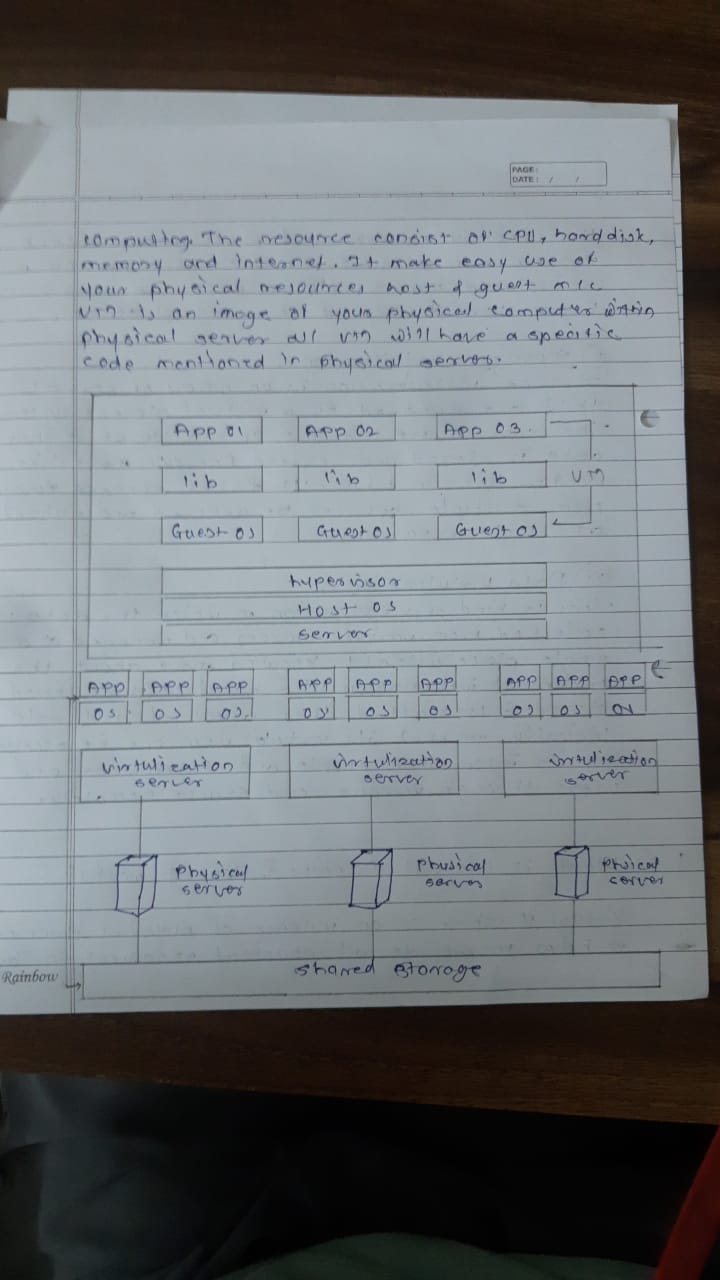 PAGE:
DATE: / /
computing. The resource consist of CPU, hard disk,
memory and internet. It make easy use of
your physical resources host & guest m/c
VM is an image of your physical computer within
physical server all VM will have a specific
code mentioned in physical server.
App 01 App 02 App 03
lib lib lib VM
Guest OS Guest OS Guest OS
hypervisor
Host OS
server
APP APP APP APP APP APP APP APP APP
OS OS OS OS OS OS OS OS OS
virtulization virtulization virtulization
server server server
physical physical phsical
server server server
Rainbow
shared storage